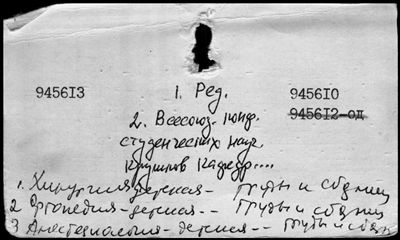 9456I3 1. Ред. 9456IO
9456I2-од
2. Всесоюз. конф.
студенческих науч.
кружков кафедр....
1. Хирургия детская - Труды и сборники
2 Ортопедия - детская - - Труды и сборн
3 Анестезиология - детская - - Труды и сборн